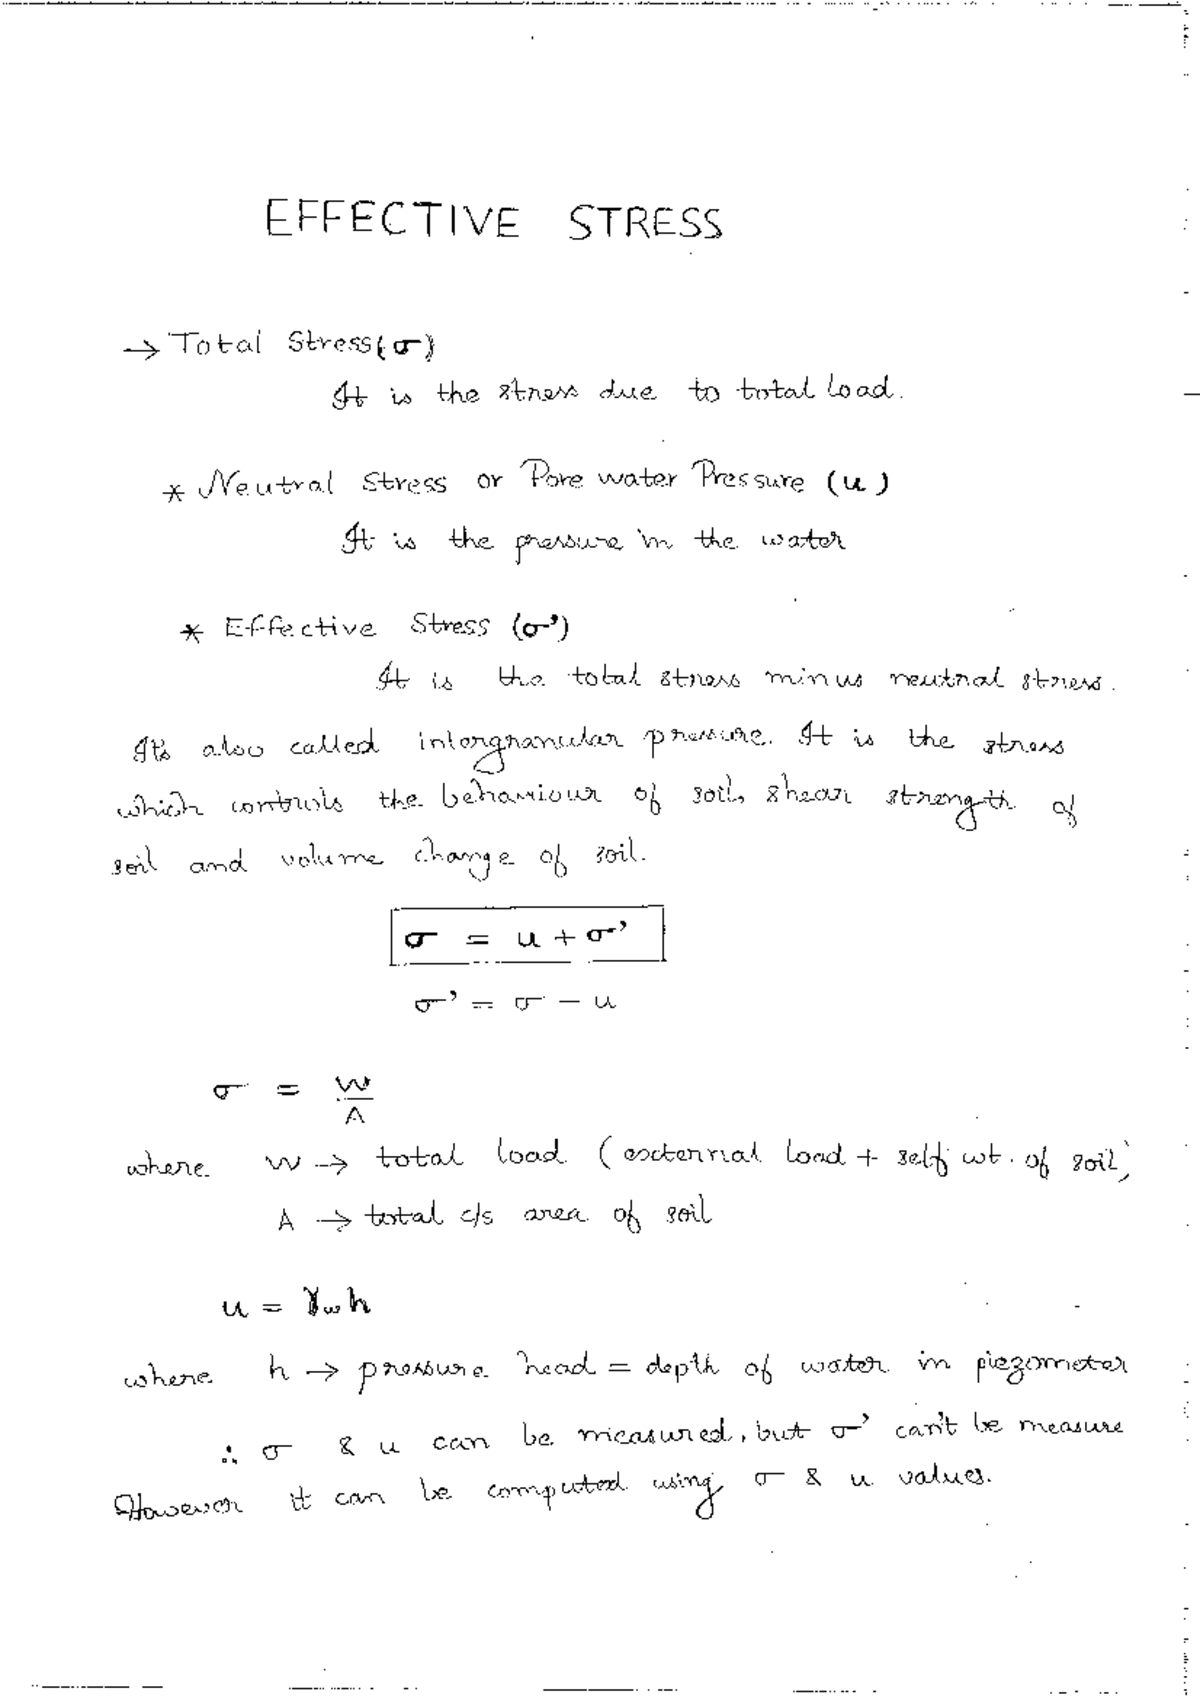 EFFECTIVE STRESS
→ Total Stress (σ)
It is the stress due to total load.
* Neutral Stress or Pore water Pressure (u)
It is the pressure in the water
* Effective Stress (σ')
It is the total stress minus neutral stress.
It's also called intergranular pressure. It is the stress
which controls the behaviour of soil, shear strength of
soil and volume change of soil.
σ = u + σ'
σ' = σ - u
σ = W/A
where W → total load (external load + self wt. of soil)
A → total c/s area of soil
u = γw h
where h → pressure head = depth of water in piezometer
∴ σ & u can be measured, but σ' can't be measure
However it can be computed using σ & u values.